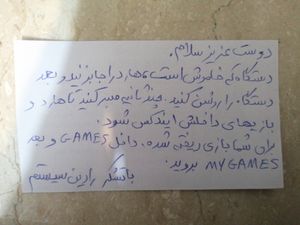 دوست عزیز سلام.
دستگاه که خاموش است هارد را جا بزنید و بعد
دستگاه را روشن کنید. چند ثانیه صبر کنید تا هارد و
بازیهای داخلش ایندکس شود.
برای شما بازی ریخته شده. داخل GAMES و بعد
MY GAMES بروید.
باتشکر رادین سیستم